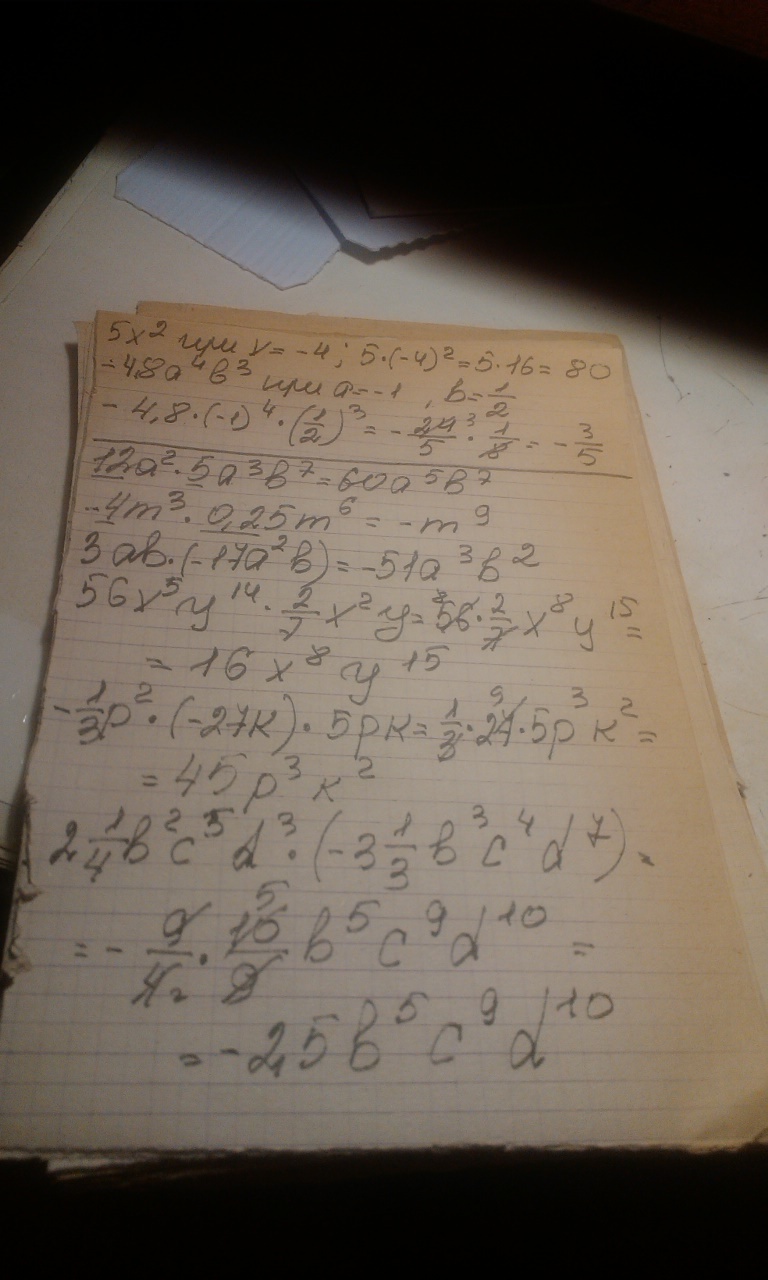 5x² при x = -4; 5·(-4)² = 5·16 = 80
-4,8a⁴b³ при a = -1, b = 1/2
-4,8·(-1)⁴·(1/2)³ = -24³/5·1/8 = -3/5
12a²·5a³b⁷ = 60a⁵b⁷
-4m³·0,25m⁶ = -m⁹
3ab·(-17a²b) = -51a³b²
56x⁵y¹⁴·2/7x²y = ⁸56·2/7x⁸y¹⁵ =
= 16x⁸y¹⁵
-1/3p²·(-27к)·5pк = 1/3·27⁹·5p³к² =
= 45p³к²
2 1/4b²c⁵d³·(-3 1/3b³c⁴d⁷) =
= -9/4₂·10⁵/9b⁵c⁹d¹⁰ =
= -2,5b⁵c⁹d¹⁰